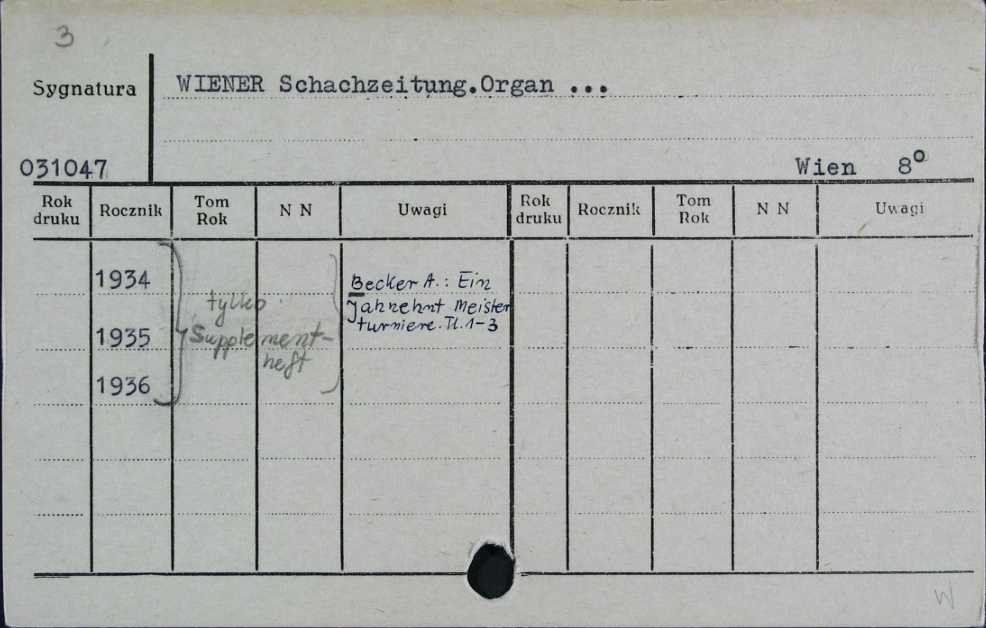 3
Sygnatura
WIENER Schachzeitung.Organ ...
031047
Wien 8°
Rok druku Rocznik Tom Rok N N Uwagi Rok druku Rocznik Tom Rok N N Uwagi
1934
Becker A.: Ein
tylko
Jahzehnt Meister
turniere. Tl. 1-3
1935
Supplement-
heft
1936
W